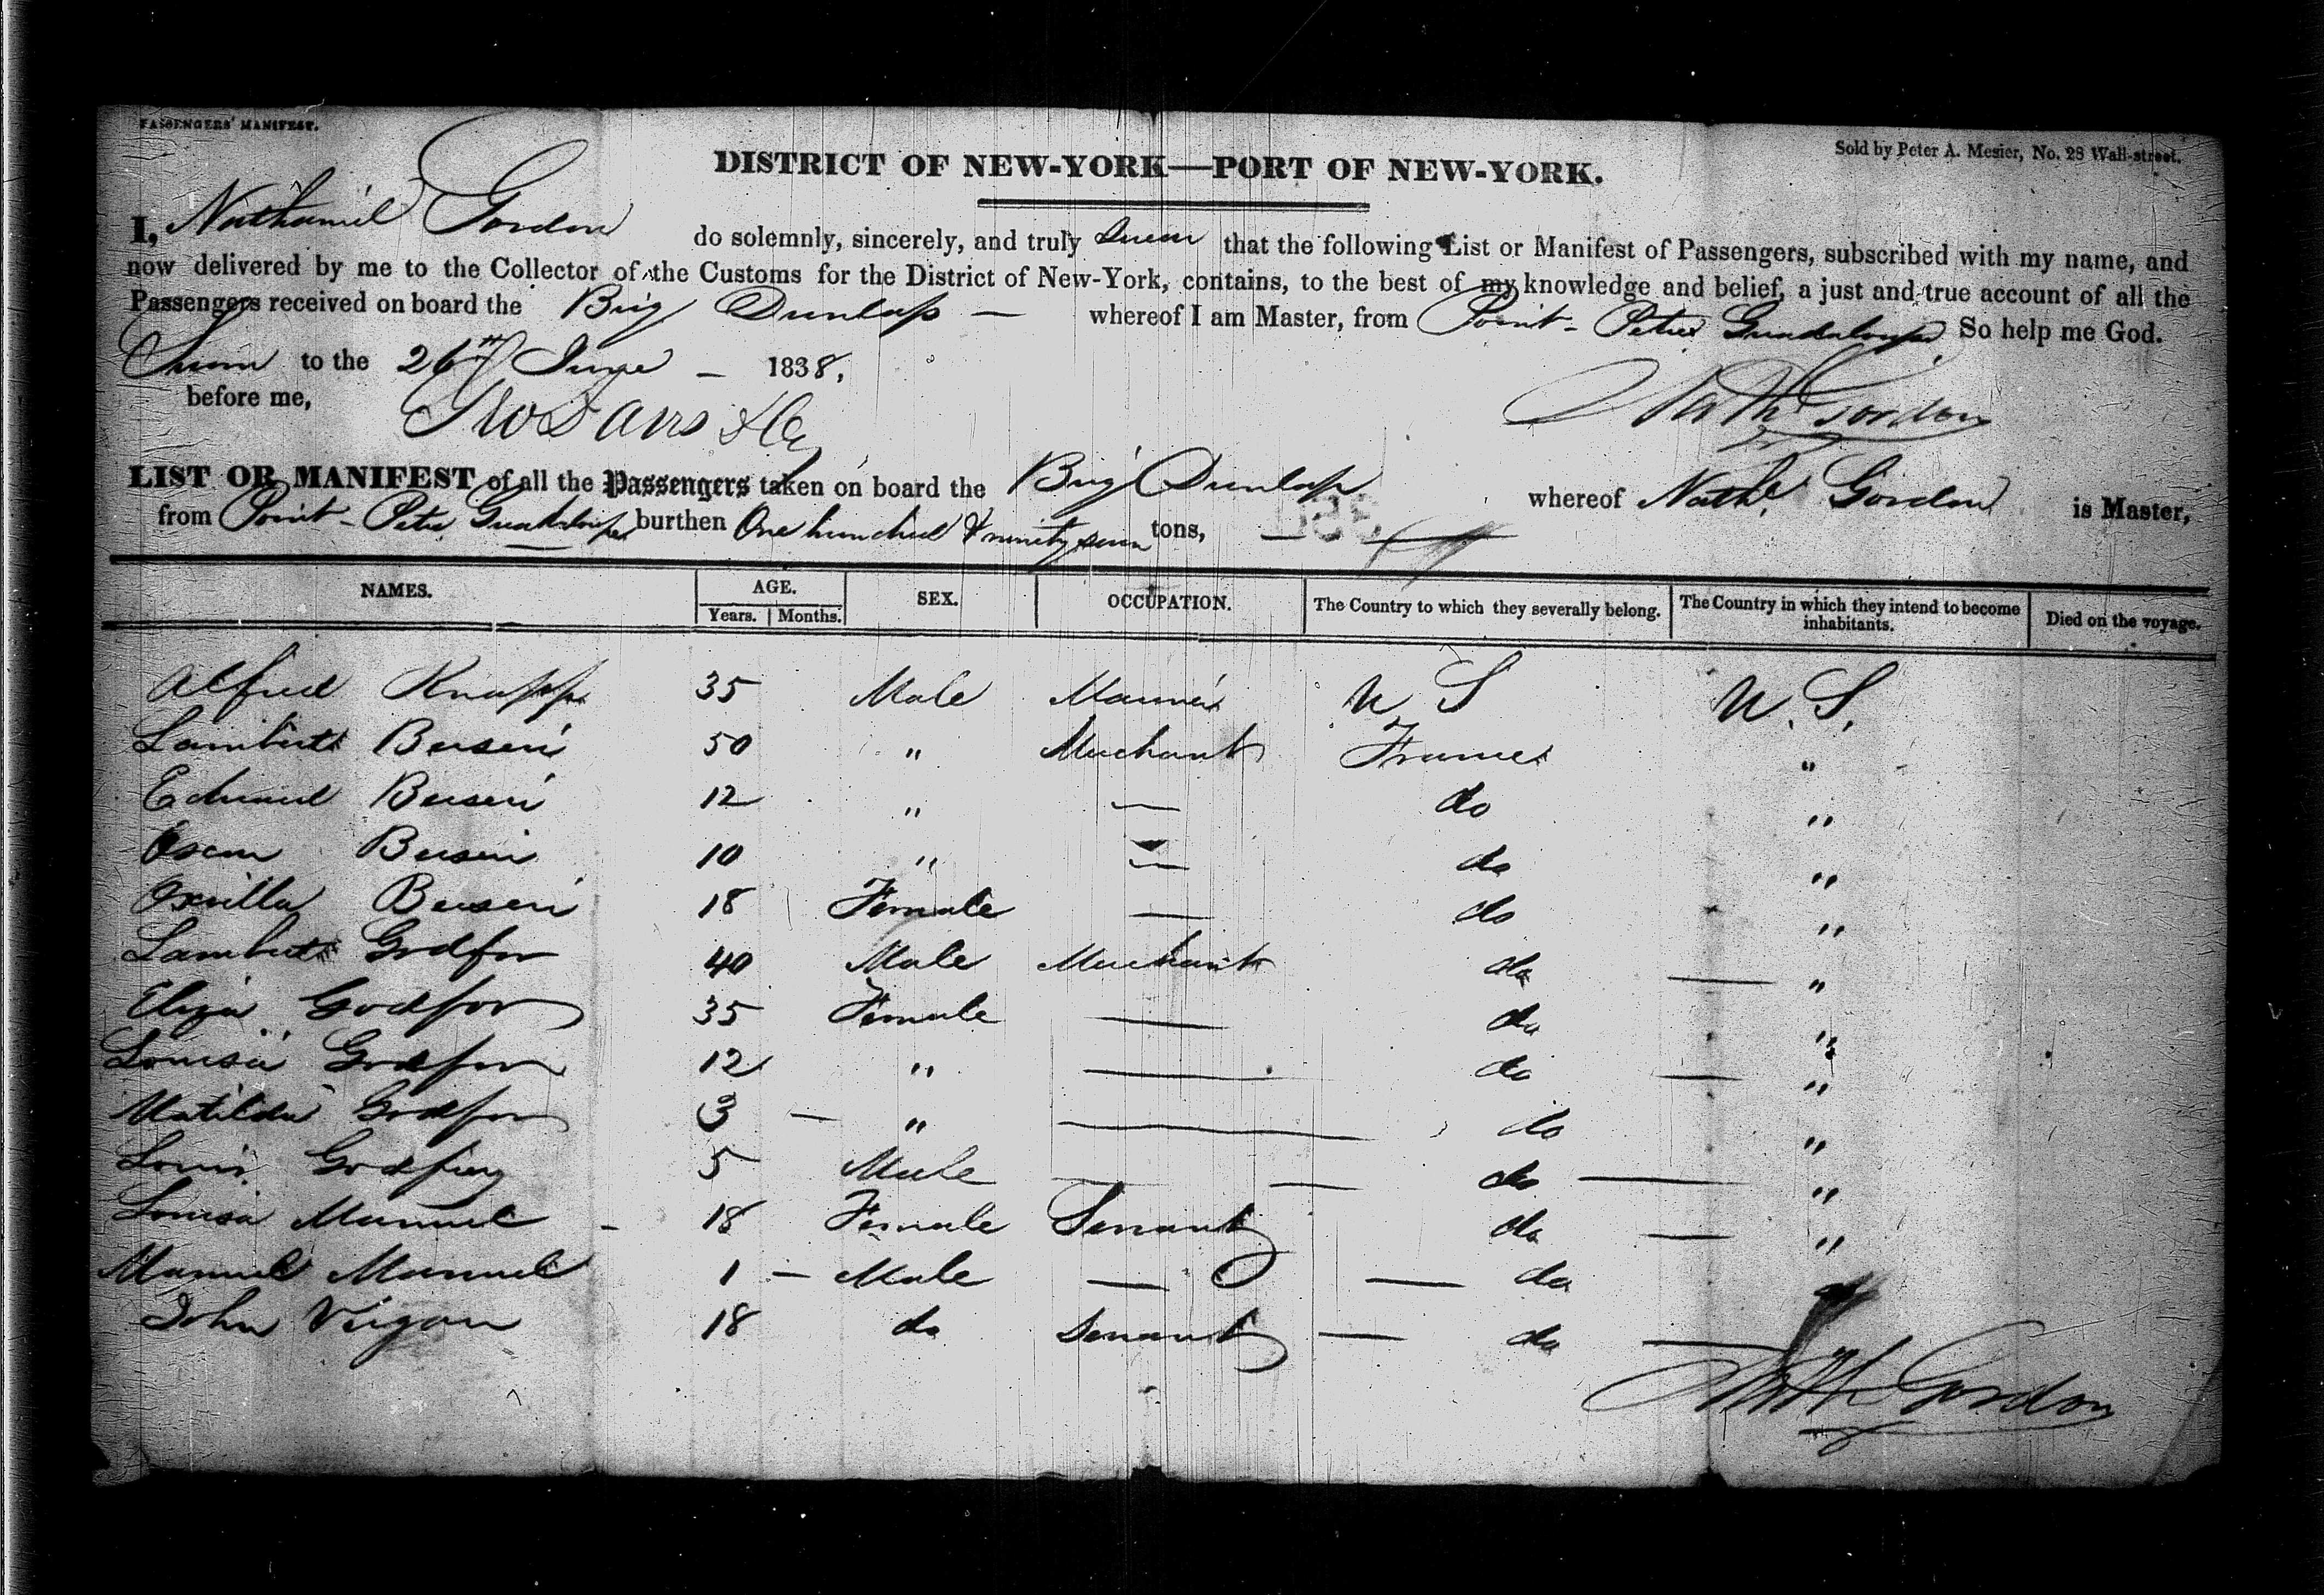 PASSENGERS' MANIFEST.
Sold by Peter A. Mesier, No. 28 Wall-street.
DISTRICT OF NEW-YORK—PORT OF NEW-YORK.
I, Nathaniel Gordon do solemnly, sincerely, and truly swear that the following List or Manifest of Passengers, subscribed with my name, and
now delivered by me to the Collector of the Customs for the District of New-York, contains, to the best of my knowledge and belief, a just and true account of all the
Passengers received on board the Brig Dunlap — whereof I am Master, from Point-Petre Guadaloupe So help me God.
Sworn to the 26th June — 1838,
before me,
Nath Gordon
LIST OR MANIFEST of all the Passengers taken on board the Brig Dunlap whereof Nathl. Gordon is Master,
from Point-Petre Guadaloupe burthen One hundred & ninety seven tons,
NAMES. AGE. SEX. OCCUPATION. The Country to which they severally belong. The Country in which they intend to become inhabitants. Died on the voyage.
Years. Months.
Alfred Knapp 35 Male Mariner U S U. S.
Lambert 50 " Merchant France "
Edmund 12 " — do "
Oscar 10 " — do "
18 Female — do "
Lambert Godfor 40 Male Merchant do — "
Eliza Godfor 35 Female — do "
Louisa Godfor 12 " — do — "
Matilda Godfor 3 — " — do "
Louis Godfrey 5 Male — — do — "
Louisa Manuel - 18 Female Servant do — "
Manuel Manuel 1 — Male — — do
John 18 do Servant — do —
Nath Gordon